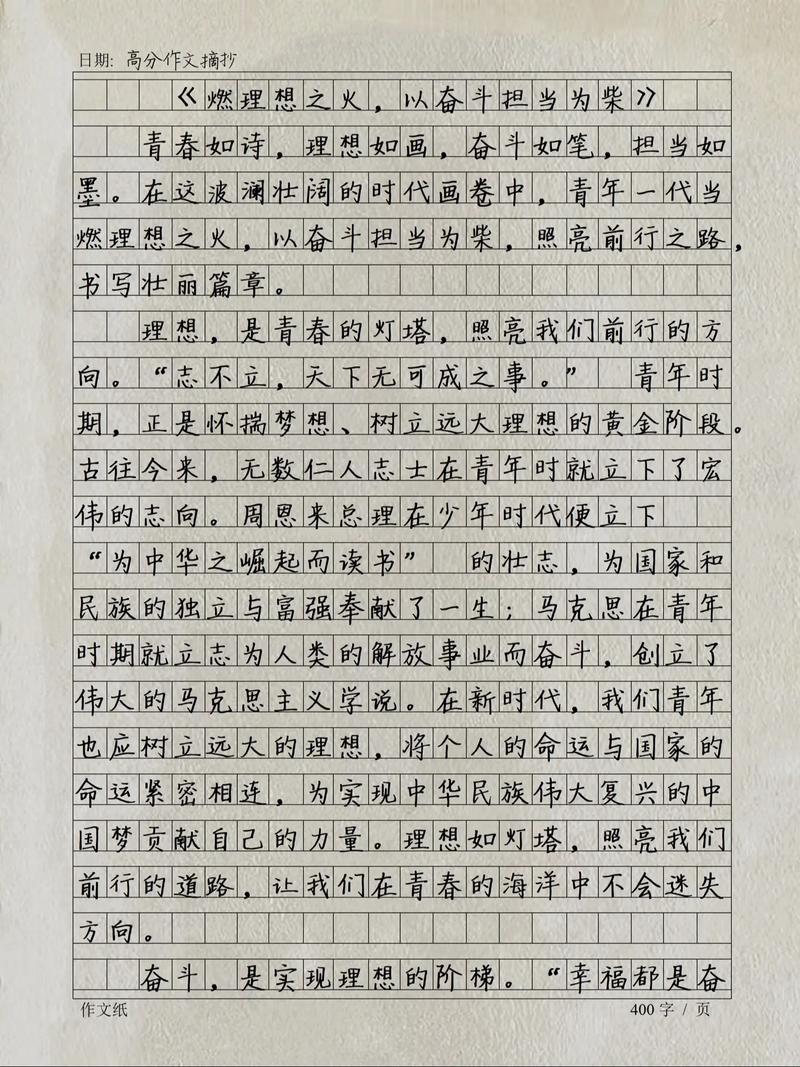 日期: 高分作文摘抄
《燃理想之火，以奋斗担当为柴》
青春如诗，理想如画，奋斗如笔，担当如
墨。在这波澜壮阔的时代画卷中，青年一代当
燃理想之火，以奋斗担当为柴，照亮前行之路，
书写壮丽篇章。
理想，是青春的灯塔，照亮我们前行的方
向。“志不立，天下无可成之事。” 青年时
期，正是怀揣梦想、树立远大理想的黄金阶段。
古往今来，无数仁人志士在青年时就立下了宏
伟的志向。周恩来总理在少年时代便立下
“为中华之崛起而读书” 的壮志，为国家和
民族的独立与富强奉献了一生；马克思在青年
时期就立志为人类的解放事业而奋斗，创立了
伟大的马克思主义学说。在新时代，我们青年
也应树立远大的理想，将个人的命运与国家的
命运紧密相连，为实现中华民族伟大复兴的中
国梦贡献自己的力量。理想如灯塔，照亮我们
前行的道路，让我们在青春的海洋中不会迷失
方向。
奋斗，是实现理想的阶梯。“幸福都是奋
作文纸 400 字 / 页